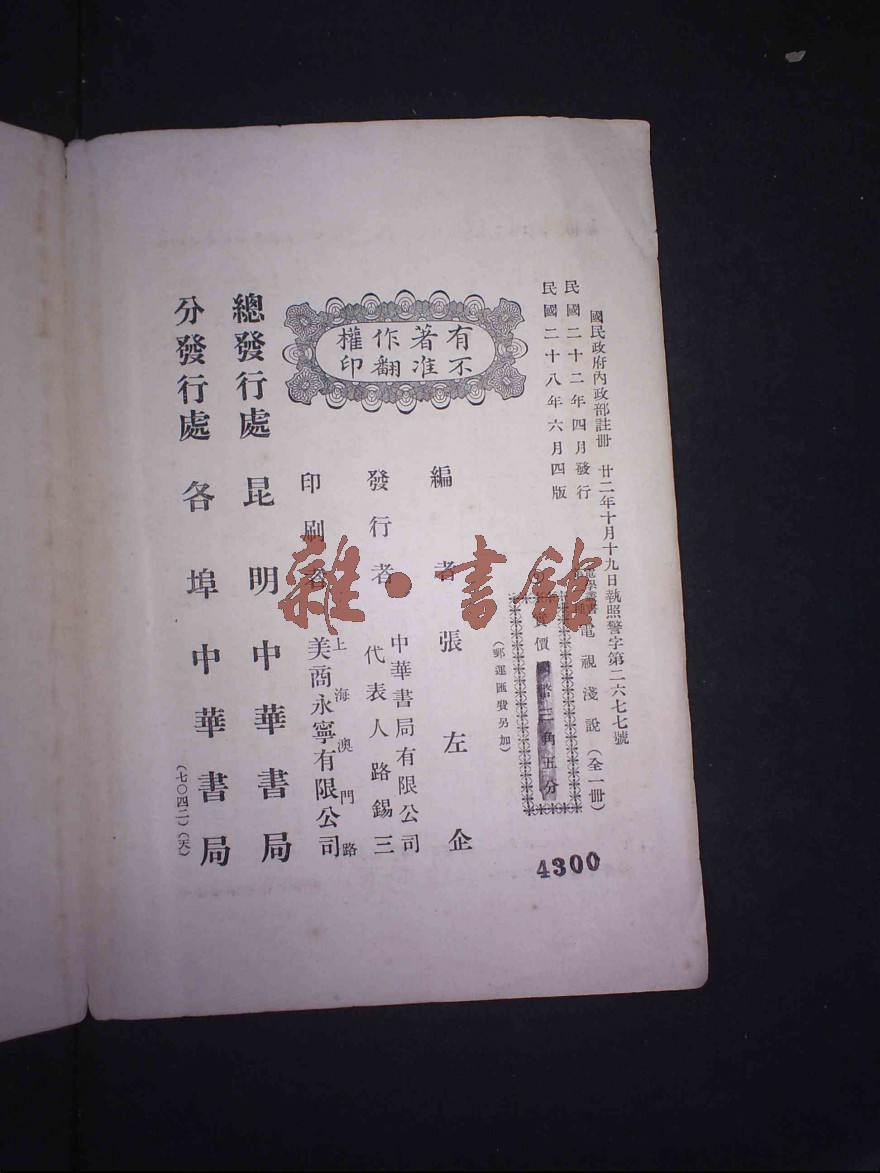 國民政府內政部註冊 廿二年十月十九日執照警字第二六七七號
民國二十二年四月發行
民國二十八年六月四版
電學叢書
電視淺說(全一冊)
價 國幣三角五分
(郵運匯費另加)
有著作權
不准翻印
編者 張左企
發行者 中華書局有限公司
代表人路錫三
印刷者 上海澳門路
美商永寧有限公司
總發行處 昆明中華書局
分發行處 各埠中華書局
(七〇四二)(天)
4300
雜·書館